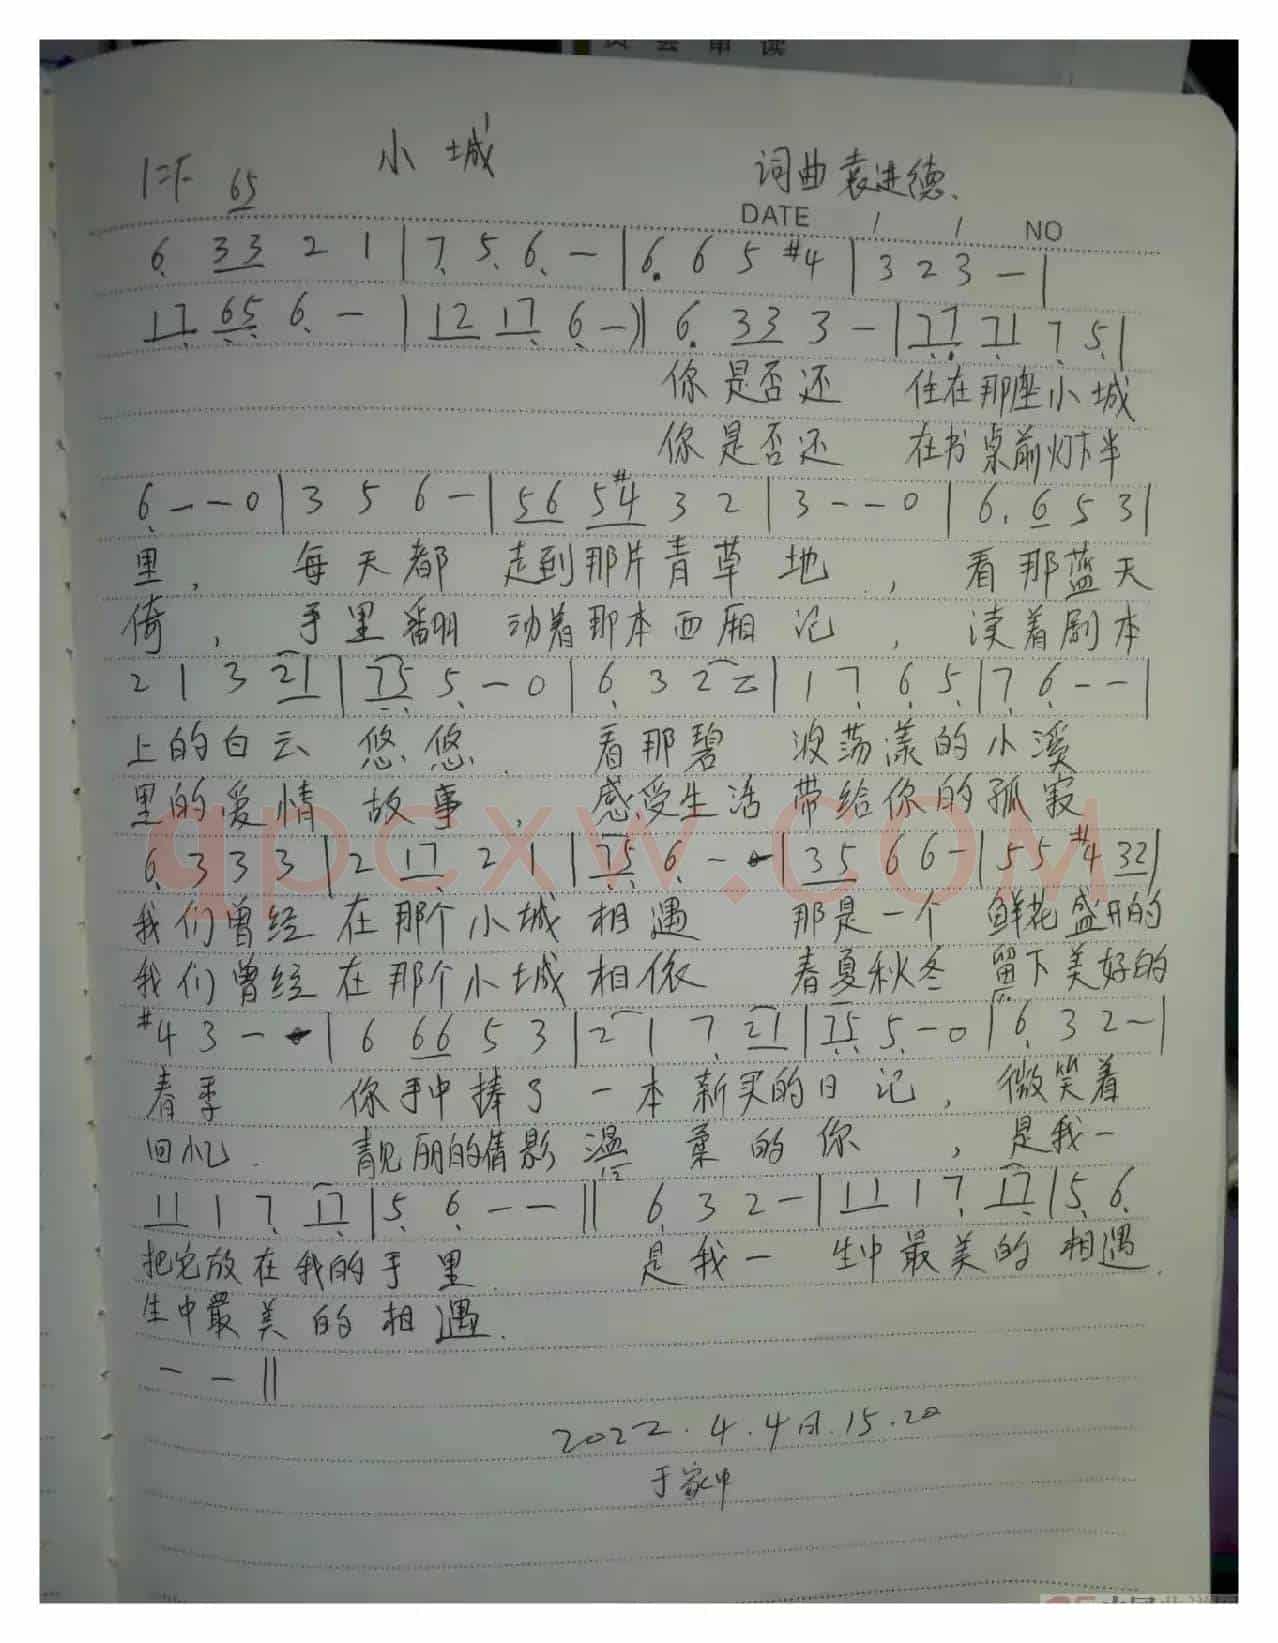 小城
1=F 65
词曲 袁进德.
DATE / / NO
6 33 2 1 | 7 5 6 - | 6. 6 5 #4 | 3 2 3 - |
17 65 6 - | 12 17 6 -)| 6. 33 3 - | 77 71 7 5 |
你是否还 住在那座小城
你是否还 在书桌前灯下半
6 - - 0 | 3 5 6 - | 56 5#4 3 2 | 3 - - 0 | 6. 6 5 3 |
里， 每天都 走到那片青草地 ， 看那蓝天
倚， 手里翻 动着那本西厢记 ， 读着剧本
2 1 3 21 | 75 5 - 0 | 6 3 2 2 | 1 7 6 5 | 7 6 - - |
上的白云 悠悠. 看那碧 波荡漾的小溪
里的爱情 故事， 感受生活 带给你的孤寂
6 3 3 3 | 2 17 2 1 | 75 6 - - | 35 6 6 - | 5 5 #4 32 |
我们曾经 在那个小城 相遇 那是一个 鲜花盛开的
我们曾经 在那个小城 相依 春夏秋冬 留下美好的
#4 3 - - | 6 66 5 3 | 2 1 7 21 | 75 5 - 0 | 6 3 2 - |
春季 你手中捧了 一本新买的日记， 微笑着
回忆. 靓丽的倩影 温柔的你 ， 是我一
11 1 7 17 | 5 6 - - || 6 3 2 - | 11 1 7 17 | 5 6
把它放在我的手里. 是我一 生中最美的相遇.
生中最美的相遇.
- - ||
2022.4.4日.15.20
于家中
qpcxw.com